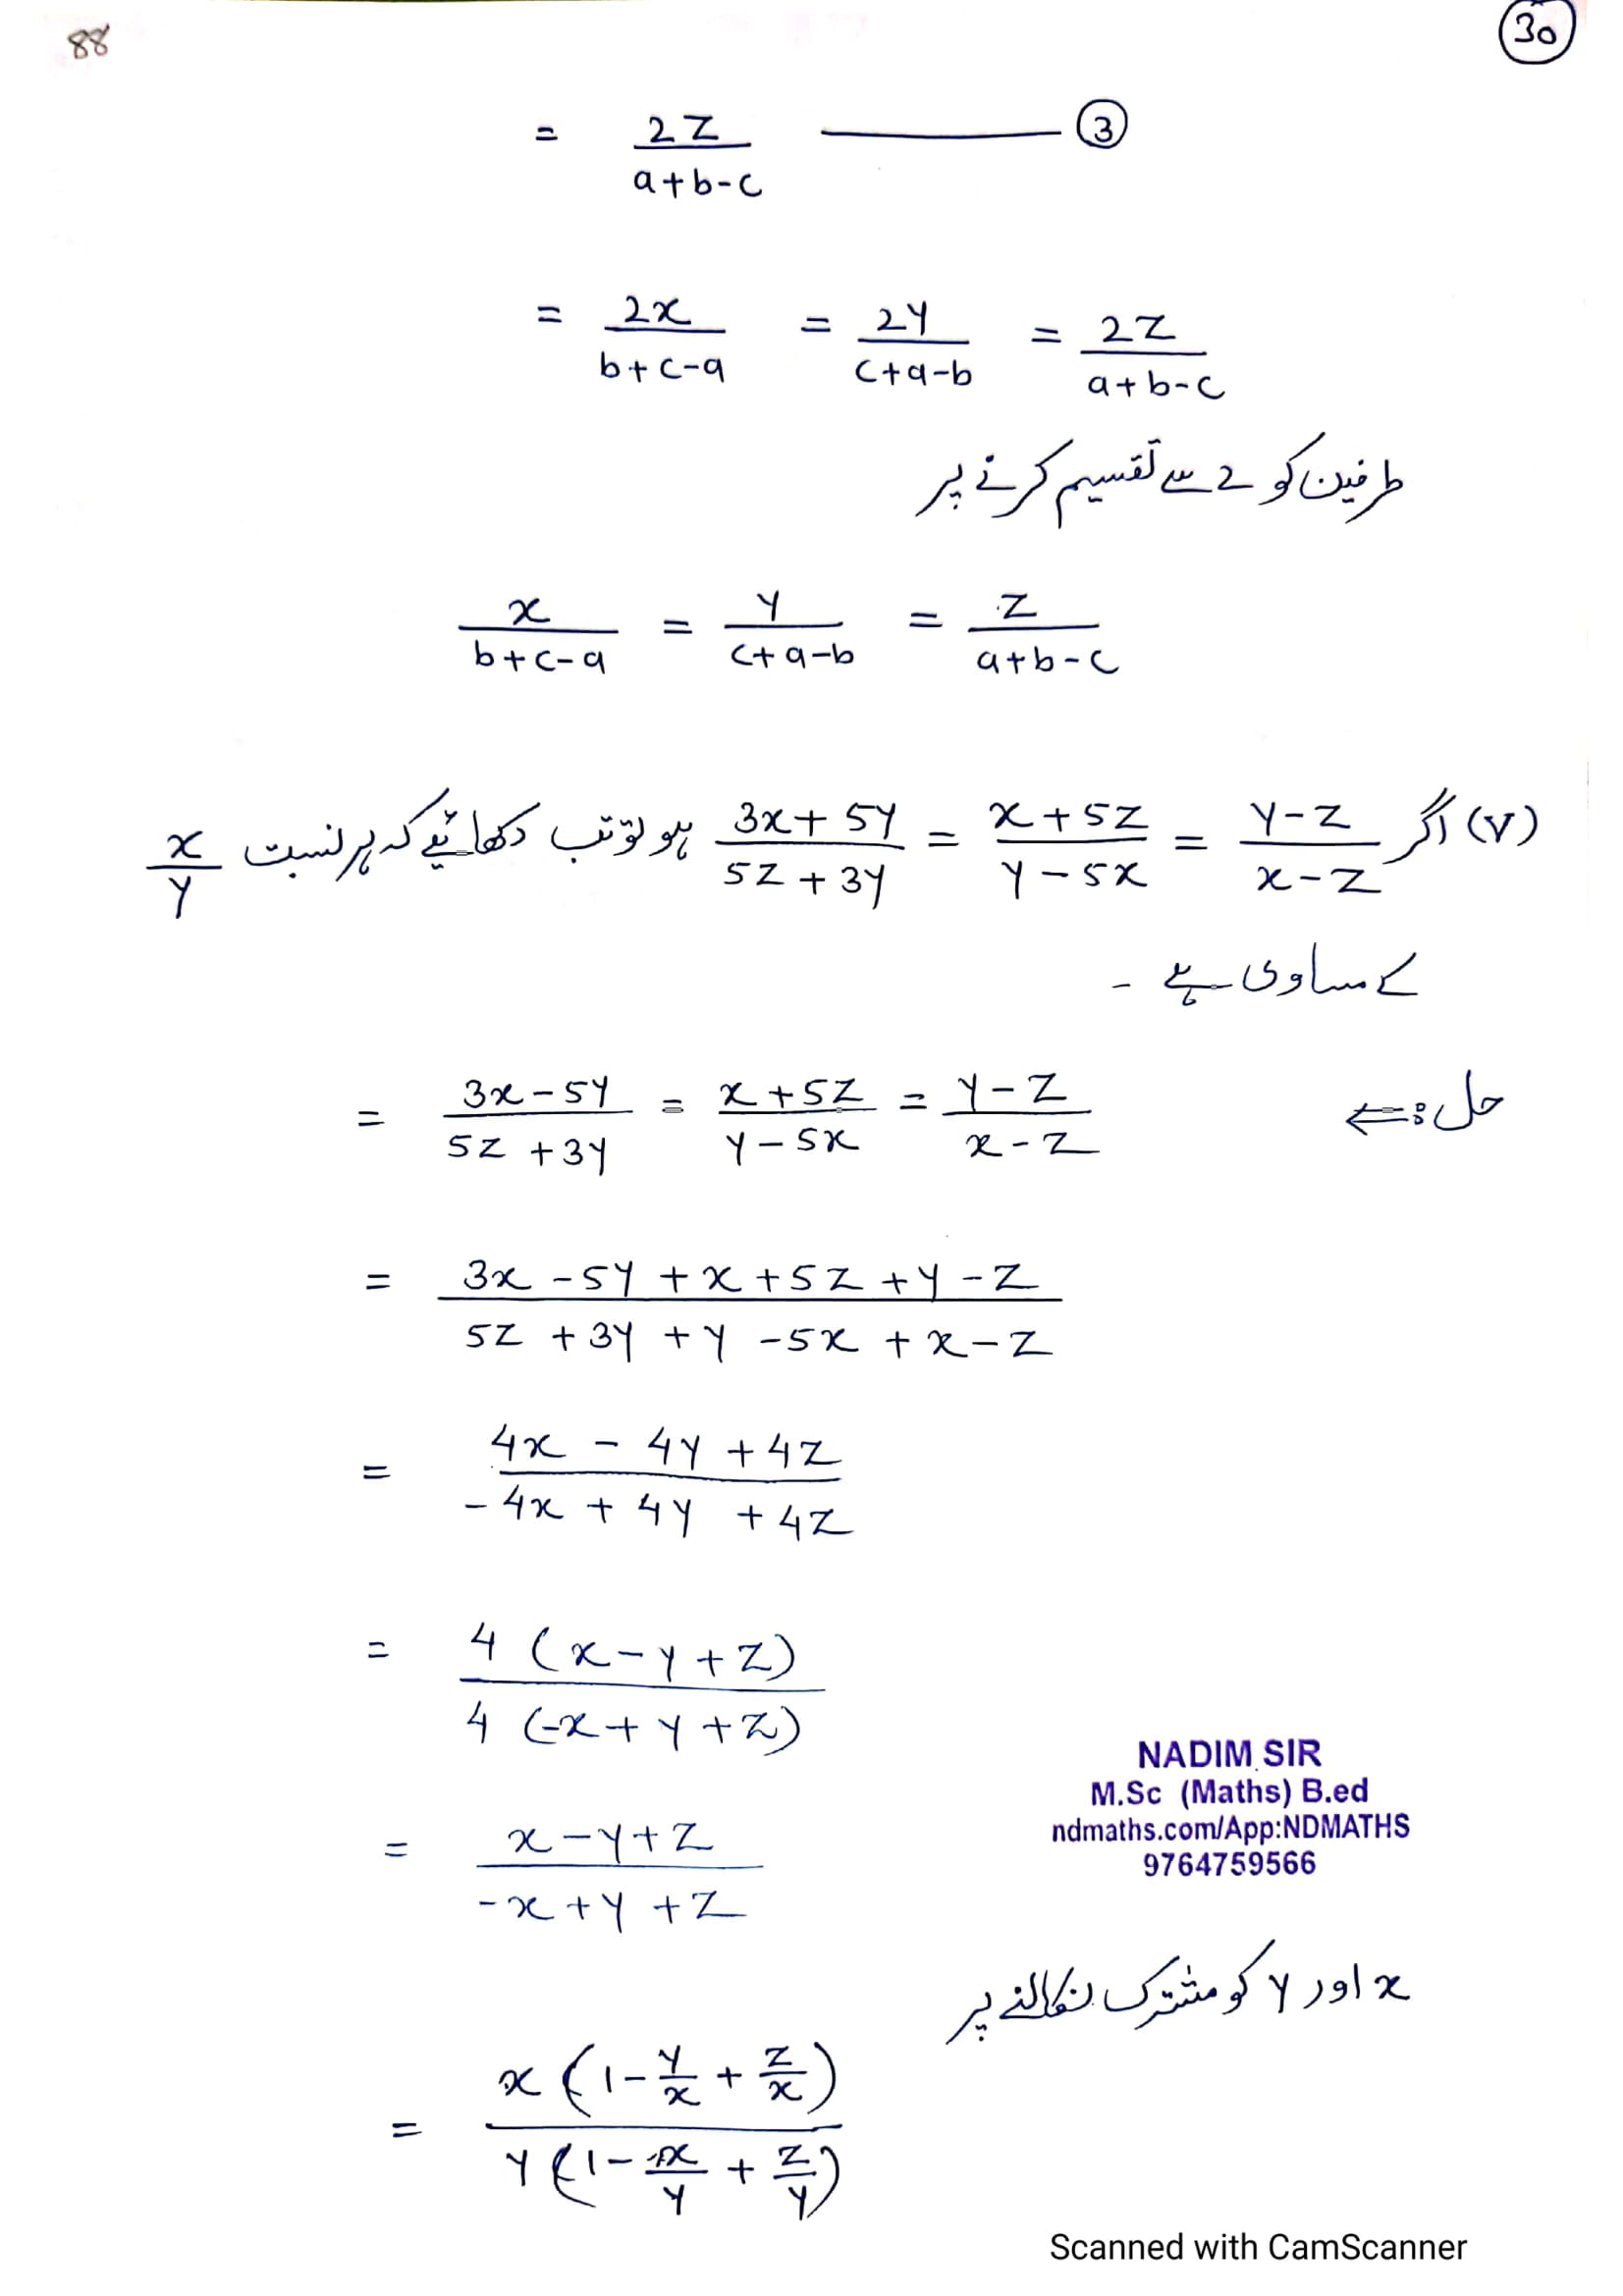 88
30
= 2z/(a+b-c) ——— (3)
= 2x/(b+c-a) = 2y/(c+a-b) = 2z/(a+b-c)
طرفین کو 2 سے تقسیم کرنے پر
x/(b+c-a) = y/(c+a-b) = z/(a+b-c)
(v) اگر (3x+5y)/(5z+3y) = (x+5z)/(y-5x) = (y-z)/(x-z) ہو تو تب دکھائیے کہ ہر نسبت x/y
کے مساوی ہے -
حل :⇐ = (3x-5y)/(5z+3y) = (x+5z)/(y-5x) = (y-z)/(x-z)
= (3x-5y+x+5z+y-z)/(5z+3y+y-5x+x-z)
= (4x-4y+4z)/(-4x+4y+4z)
= 4(x-y+z)/4(-x+y+z)
= (x-y+z)/(-x+y+z)
NADIM SIR
M.Sc (Maths) B.ed
ndmaths.com/App:NDMATHS
9764759566
x اور y کو مشترک نکالنے پر
= x(1-y/x+z/x)/y(1-x/y+z/y)
Scanned with CamScanner